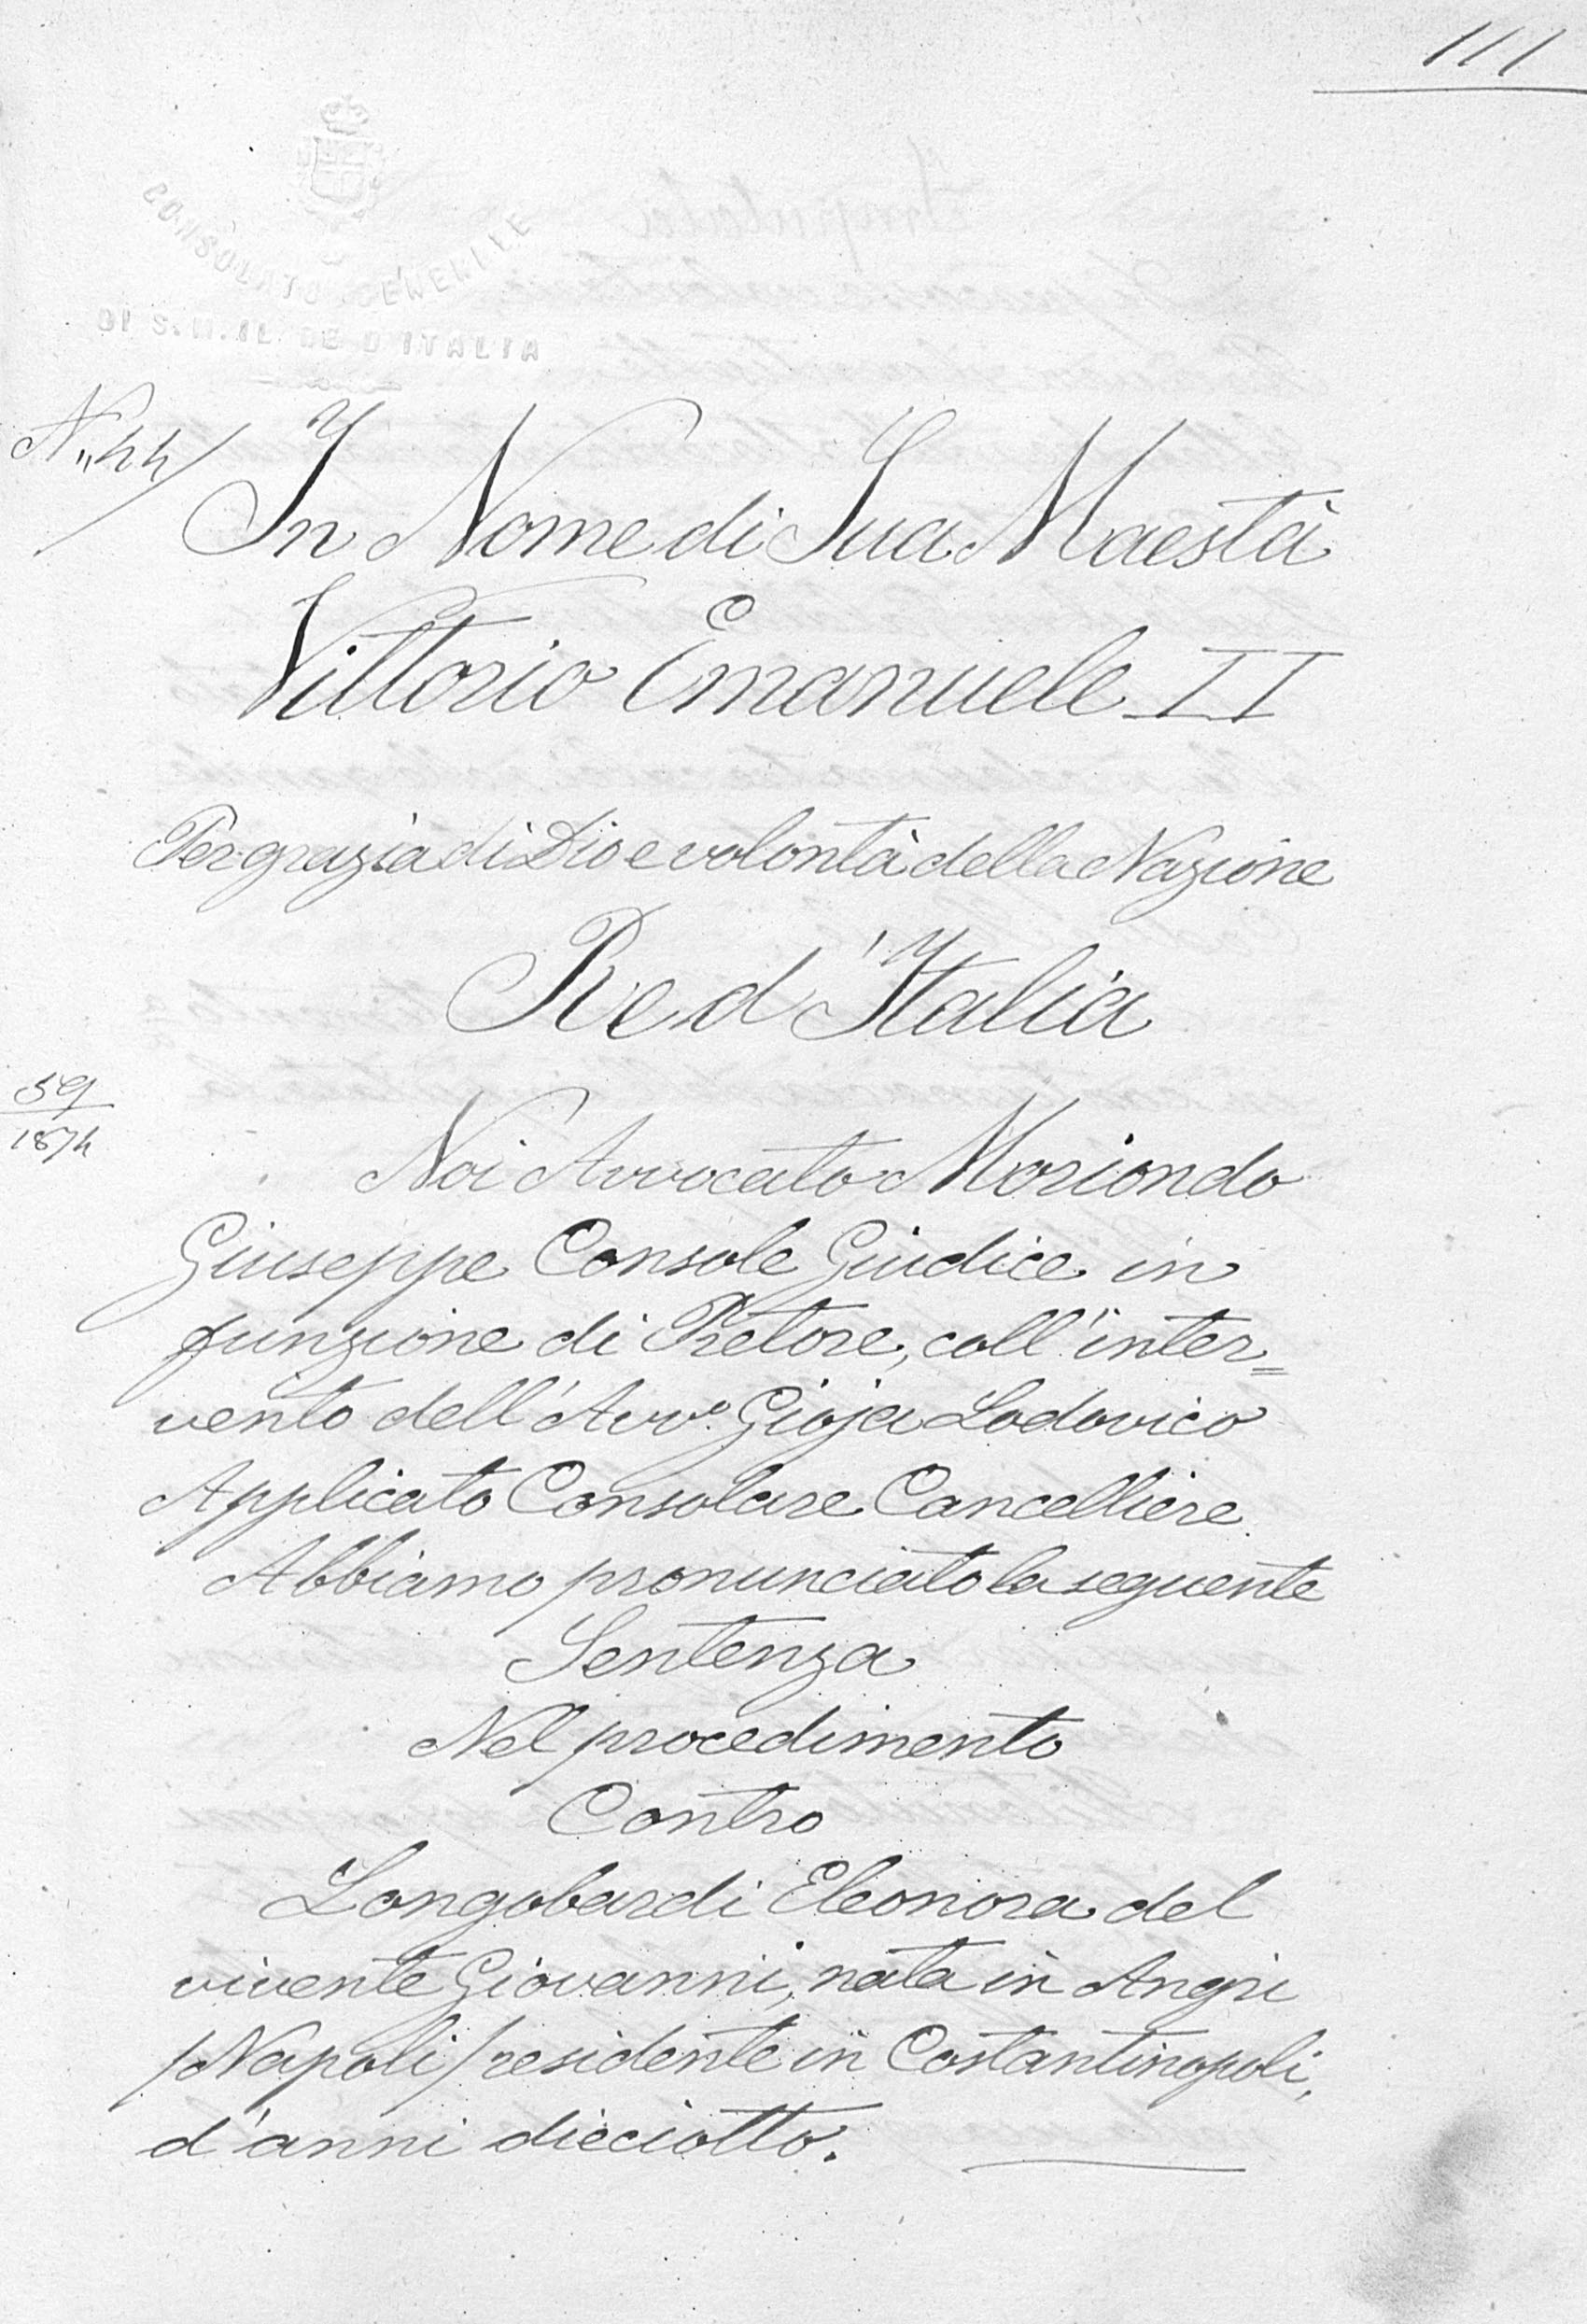 111
CONSOLATO GENERALE
DI S. M. IL RE D'ITALIA
N. 44
In Nome di Sua Maestà
Vittorio Emanuele II
Per grazia di Dio e volontà della Nazione
Re d'Italia
59
1874
Noi Avvocato Moriondo
Giuseppe Console Giudice in
funzione di Pretore, coll'inter=
vento dell'Avvo. Gioja Lodovico
Applicato Consolare Cancelliere
Abbiamo pronunciato la seguente
Sentenza
Nel procedimento
Contro
Longobardi Eleonora del
vivente Giovanni, nata in Angri
/Napoli/ residente in Costantinopoli,
d'anni dieciotto.